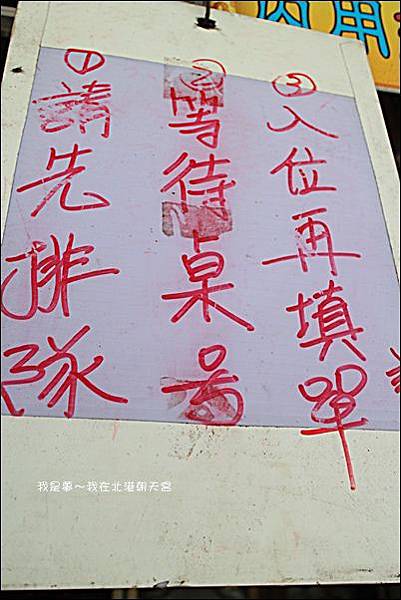 內用
①請先排隊
②等待桌号
③入位再填單
我是夢～我在北港朝天宮